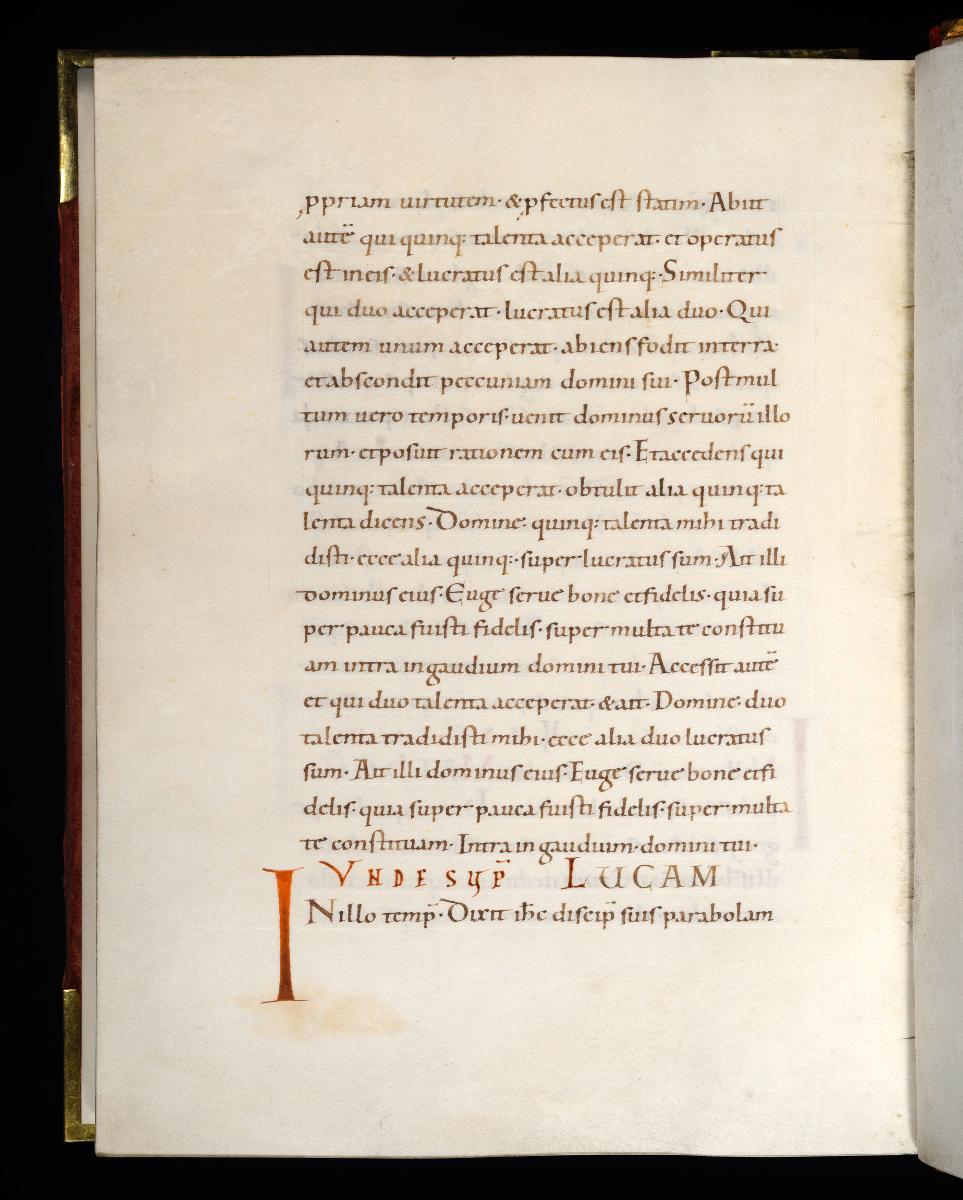 ppriam uirtutem· & pfectus est statim· Abiit
autē qui quinq: talenta acceperat· et operatus
est in eis· & lucratus est alia quinq:· Similiter
qui duo acceperat· lucratus est alia duo· Qui
autem unum acceperat· abiens fodit in terra·
et abscondit peccuniam domini sui· Post mul
tum uero temporis· uenit dominus seruorū illo
rum· et posuit rationem cum eis· Et accedens qui
quinq: talenta acceperat· obtulit alia quinq: ta
lenta dicens· Domine· quinq: talenta mihi tradi
disti· ecce alia quinq:· super lucratus sum· Ait illi
dominus eius· Euge serue bone et fidelis· quia su
per pauca fuisti fidelis· super multa te constitu
am intra in gaudium domini tui· Accessit autē
et qui duo talenta acceperat· & ait· Domine· duo
talenta tradidisti mihi· ecce alia duo lucratus
sum· Ait illi dominus eius· Euge serue bone et fi
delis· quia super pauca fuisti fidelis· super multa
te constituam· Intra in gaudium· domini tui·
VNDE SUP̄ LUCAM
INillo temp̄· Dixit ihc discip̄ suis parabolam